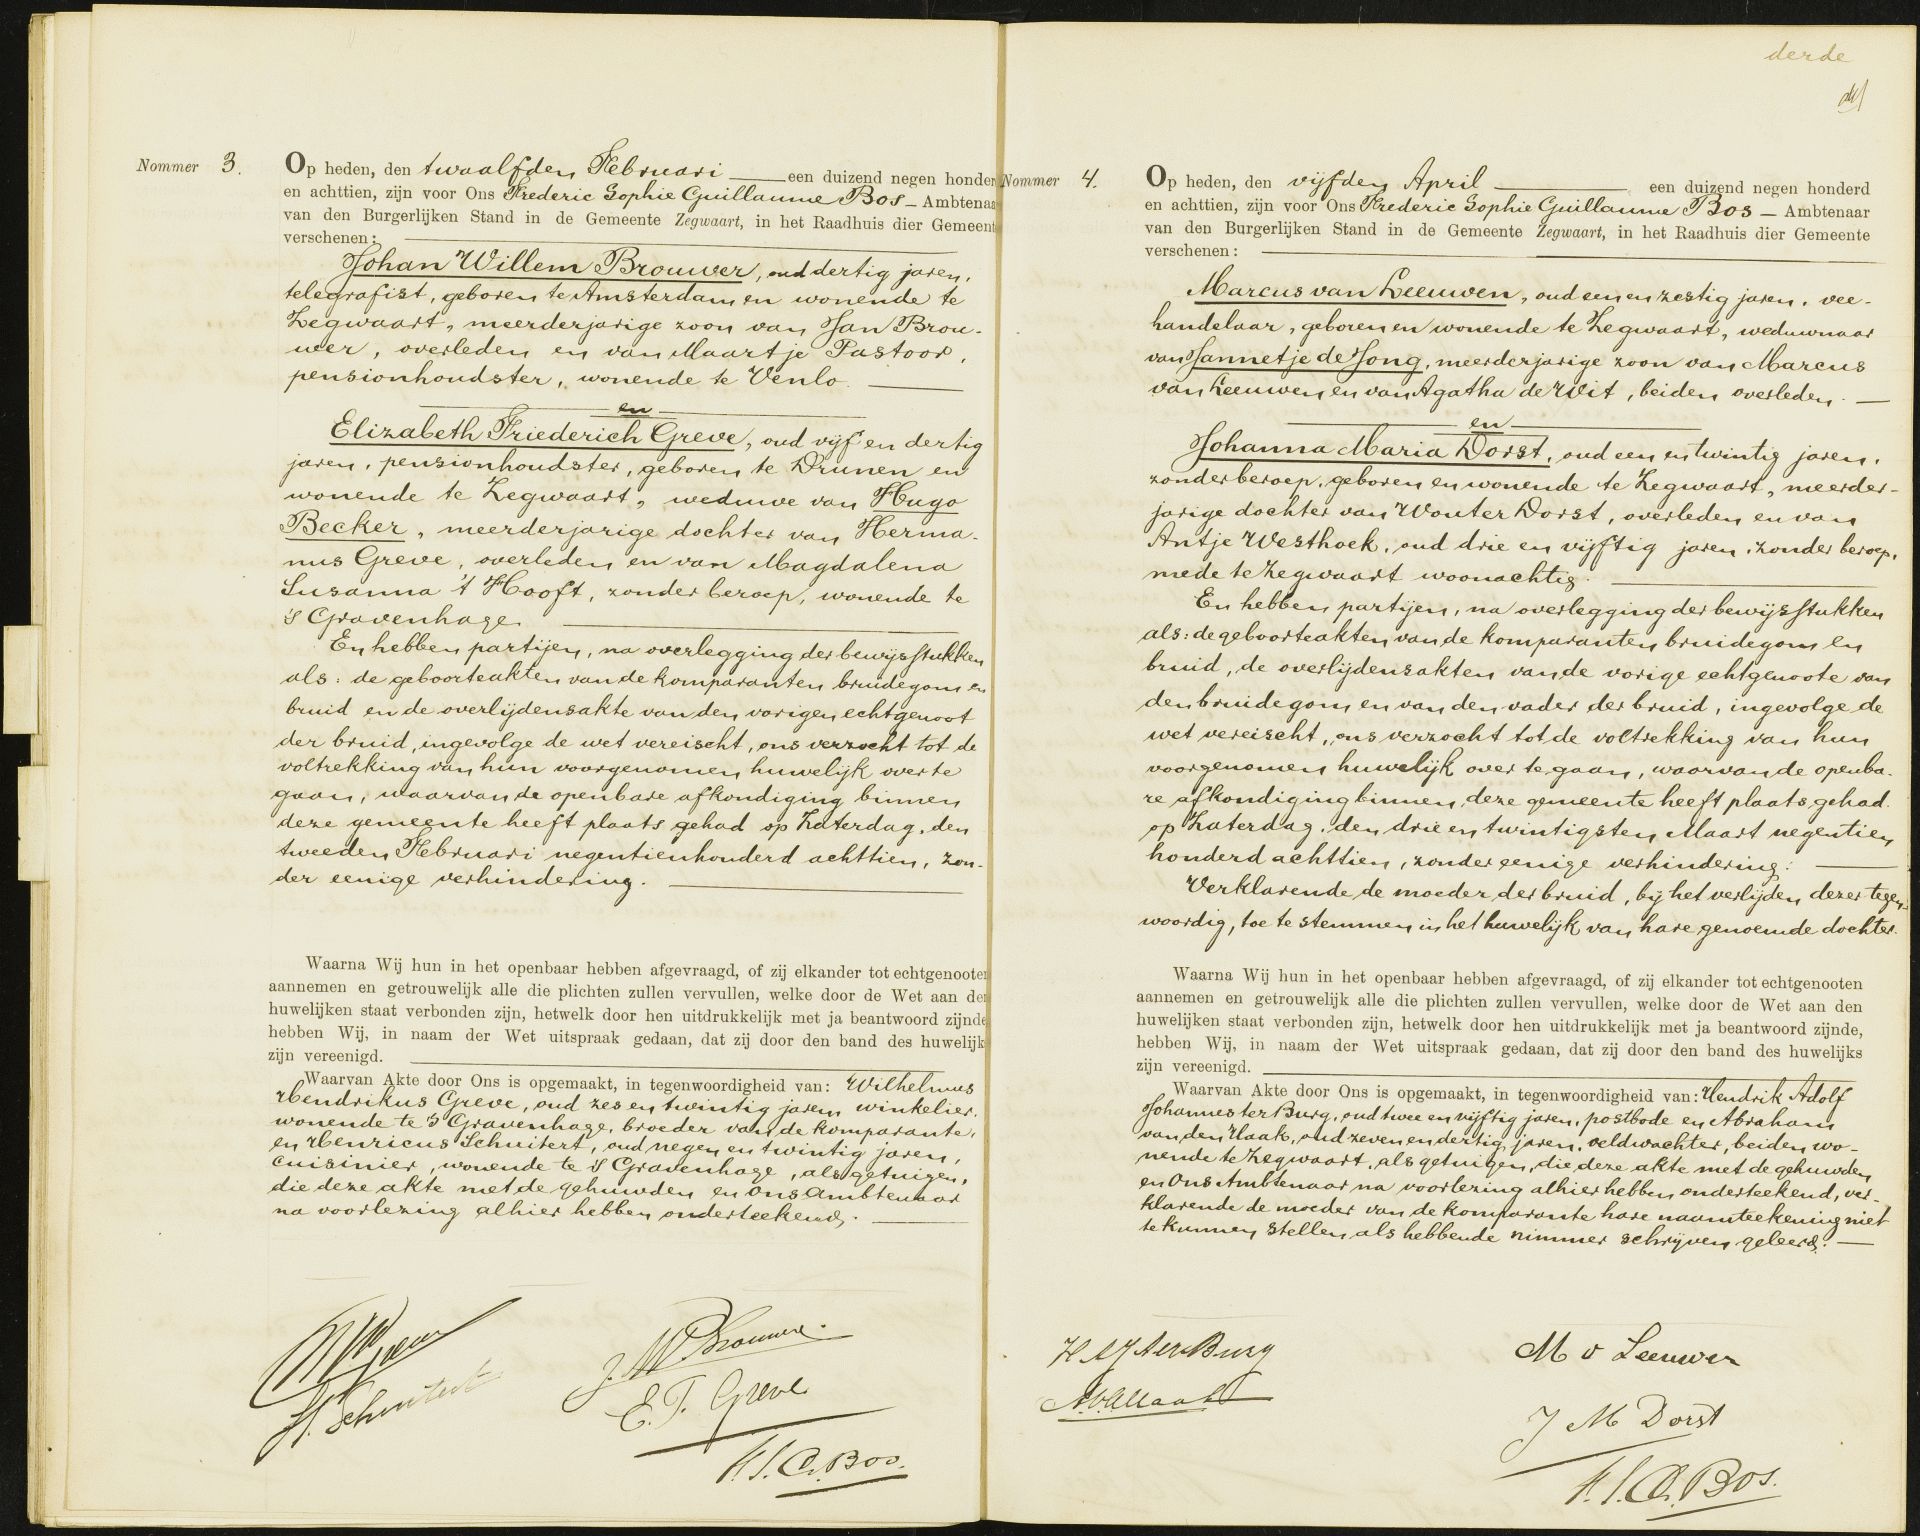 Nommer 3.
Op heden, den twaalfden Februari een duizend negen honder
en achttien, zijn voor Ons Frederic Sophie Guillaume Bos – Ambtenaa
van den Burgerlijken Stand in de Gemeente Zegwaart, in het Raadhuis dier Gemeent
verschenen:
Johan Willem Brouwer, oud dertig jaren,
telegrafist, geboren te Amsterdam en wonende te
Zegwaart, meerderjarige zoon van Jan Brou-
wer, overleden en van Maartje Pastoor,
pensionhoudster, wonende te Venlo.
en
Elizabeth Friederich Greve, oud vijf en dertig
jaren, pensionhoudster, geboren te Drunen en
wonende te Zegwaart, weduwe van Hugo
Becker, meerderjarige dochter van Herma-
nus Greve, overleden en van Magdalena
Susanna 't Hooft, zonder beroep, wonende te
's Gravenhage.
En hebben partijen, na overlegging der bewijsstukken
als: de geboorteakten van de komparanten bruidegom en
bruid en de overlijdensakte van den vorigen echtgenoot
der bruid, ingevolge de wet vereischt, ons verzocht tot de
voltrekking van hun voorgenomen huwelijk over te
gaan, waarvan de openbare afkondiging binnen
deze gemeente heeft plaats gehad op Zaterdag, den
tweeden Februari negentienhonderd achttien, zon-
der eenige verhindering.
Waarna Wij hun in het openbaar hebben afgevraagd, of zij elkander tot echtgenooten
aannemen en getrouwelijk alle die plichten zullen vervullen, welke door de Wet aan den
huwelijken staat verbonden zijn, hetwelk door hen uitdrukkelijk met ja beantwoord zijnde
hebben Wij, in naam der Wet uitspraak gedaan, dat zij door den band des huwelijk
zijn vereenigd.
Waarvan Akte door Ons is opgemaakt, in tegenwoordigheid van: Wilhelmus
Hendrikus Greve, oud zes en twintig jaren winkelier,
wonende te 's Gravenhage, broeder van de komparante,
en Henricus Schuitert, oud negen en twintig jaren,
cuisinier, wonende te 's Gravenhage, als getuigen,
die deze akte met de gehuwden en Ons Ambtenaar
na voorlezing alhier hebben onderteekend.
H. Schuitert
J. W Brouwer.
E. F. Greve
F. S. G. Bos.
derde
Nommer 4.
Op heden, den vijfden April een duizend negen honderd
en achttien, zijn voor Ons Frederic Sophie Guillaume Bos – Ambtenaar
van den Burgerlijken Stand in de Gemeente Zegwaart, in het Raadhuis dier Gemeente
verschenen:
Marcus van Leeuwen, oud een en zestig jaren, vee-
handelaar, geboren en wonende te Zegwaart, weduwnaar
van Jannetje de Jong, meerderjarige zoon van Marcus
van Leeuwen en van Agatha de Wit, beiden overleden.
en
Johanna Maria Dorst, oud een en twintig jaren,
zonder beroep, geboren en wonende te Zegwaart, meerder-
jarige dochter van Wouter Dorst, overleden en van
Antje Westhoek, oud drie en vijftig jaren, zonder beroep,
mede te Zegwaart woonachtig.
En hebben partijen, na overlegging der bewijsstukken
als: de geboorteakten van de komparanten bruidegom en
bruid, de overlijdensakten van de vorige echtgenoote van
den bruidegom en van den vader der bruid, ingevolge de
wet vereischt, ons verzocht tot de voltrekking van hun
voorgenomen huwelijk over te gaan, waarvan de openba-
re afkondiging binnen deze gemeente heeft plaats gehad
op Zaterdag, den drie en twintigsten Maart negentien
honderd achttien, zonder eenige verhindering.
Verklarende de moeder der bruid, bij het verlijden dezer tegen-
woordig, toe te stemmen in het huwelijk van hare genoemde dochter.
Waarna Wij hun in het openbaar hebben afgevraagd, of zij elkander tot echtgenooten
aannemen en getrouwelijk alle die plichten zullen vervullen, welke door de Wet aan den
huwelijken staat verbonden zijn, hetwelk door hen uitdrukkelijk met ja beantwoord zijnde,
hebben Wij, in naam der Wet uitspraak gedaan, dat zij door den band des huwelijks
zijn vereenigd.
Waarvan Akte door Ons is opgemaakt, in tegenwoordigheid van: Hendrik Adolf
Johannes ter Burg, oud twee en vijftig jaren, postbode en Abraham
van den Haak, oud zeven en dertig jaren, veldwachter, beiden wo-
nende te Zegwaart, als getuigen, die deze akte met de gehuwden
en Ons Ambtenaar na voorlezing alhier hebben onderteekend, ver-
klarende de moeder van de komparante hare naamteekening niet
te kunnen stellen als hebbende nimmer schrijven geleerd.
H A J ter Burg
M v Leeuwen
J M Dorst
F. S. G. Bos.